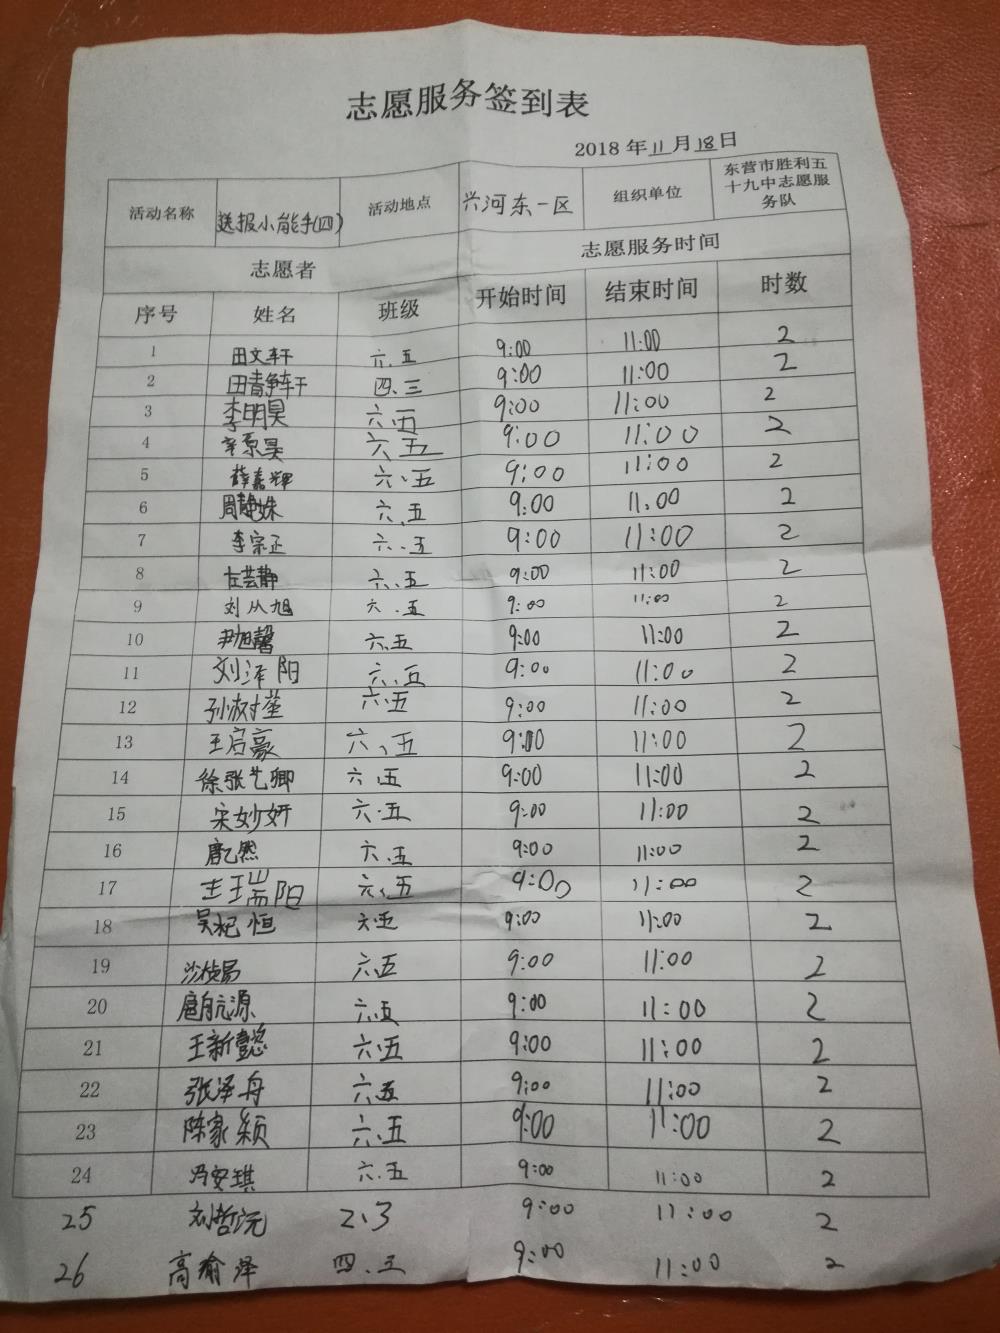 志愿服务签到表
2018 年 11 月 18 日
活动名称 送报小能手(四) 活动地点 兴河东一区 组织单位 东营市胜利五十九中志愿服务队
志愿者 志愿服务时间
序号 姓名 班级 开始时间 结束时间 时数
1 田文轩 六.五 9:00 11:00 2
2 田静轩 四.三 9:00 11:00 2
3 李明昊 六.五 9:00 11:00 2
4 辛原昊 六.五 9:00 11:00 2
5 薛嘉辉 六.五 9:00 11:00 2
6 周静姝 六.五 9:00 11:00 2
7 李宗正 六.五 9:00 11:00 2
8 左芸静 六.五 9:00 11:00 2
9 刘从旭 六.五 9:00 11:00 2
10 尹旭馨 六.五 9:00 11:00 2
11 刘泽阳 六.五 9:00 11:00 2
12 孙树堇 六.五 9:00 11:00 2
13 王启豪 六、五 9:00 11:00 2
14 徐张艺卿 六.五 9:00 11:00 2
15 宋妙妍 六.五 9:00 11:00 2
16 六.五 9:00 11:00 2
17 王瑞阳 六.五 9:00 11:00 2
18 吴杞恒 六.五 9:00 11:00 2
19 六.五 9:00 11:00 2
20 唐航源 六.五 9:00 11:00 2
21 王新懿 六.五 9:00 11:00 2
22 张泽舟 六.五 9:00 11:00 2
23 陈家颖 六.五 9:00 11:00 2
24 冯安琪 六.五 9:00 11:00 2
25 刘哲沅 2、3 9:00 11:00 2
26 高瑜泽 四.三 9:00 11:00 2